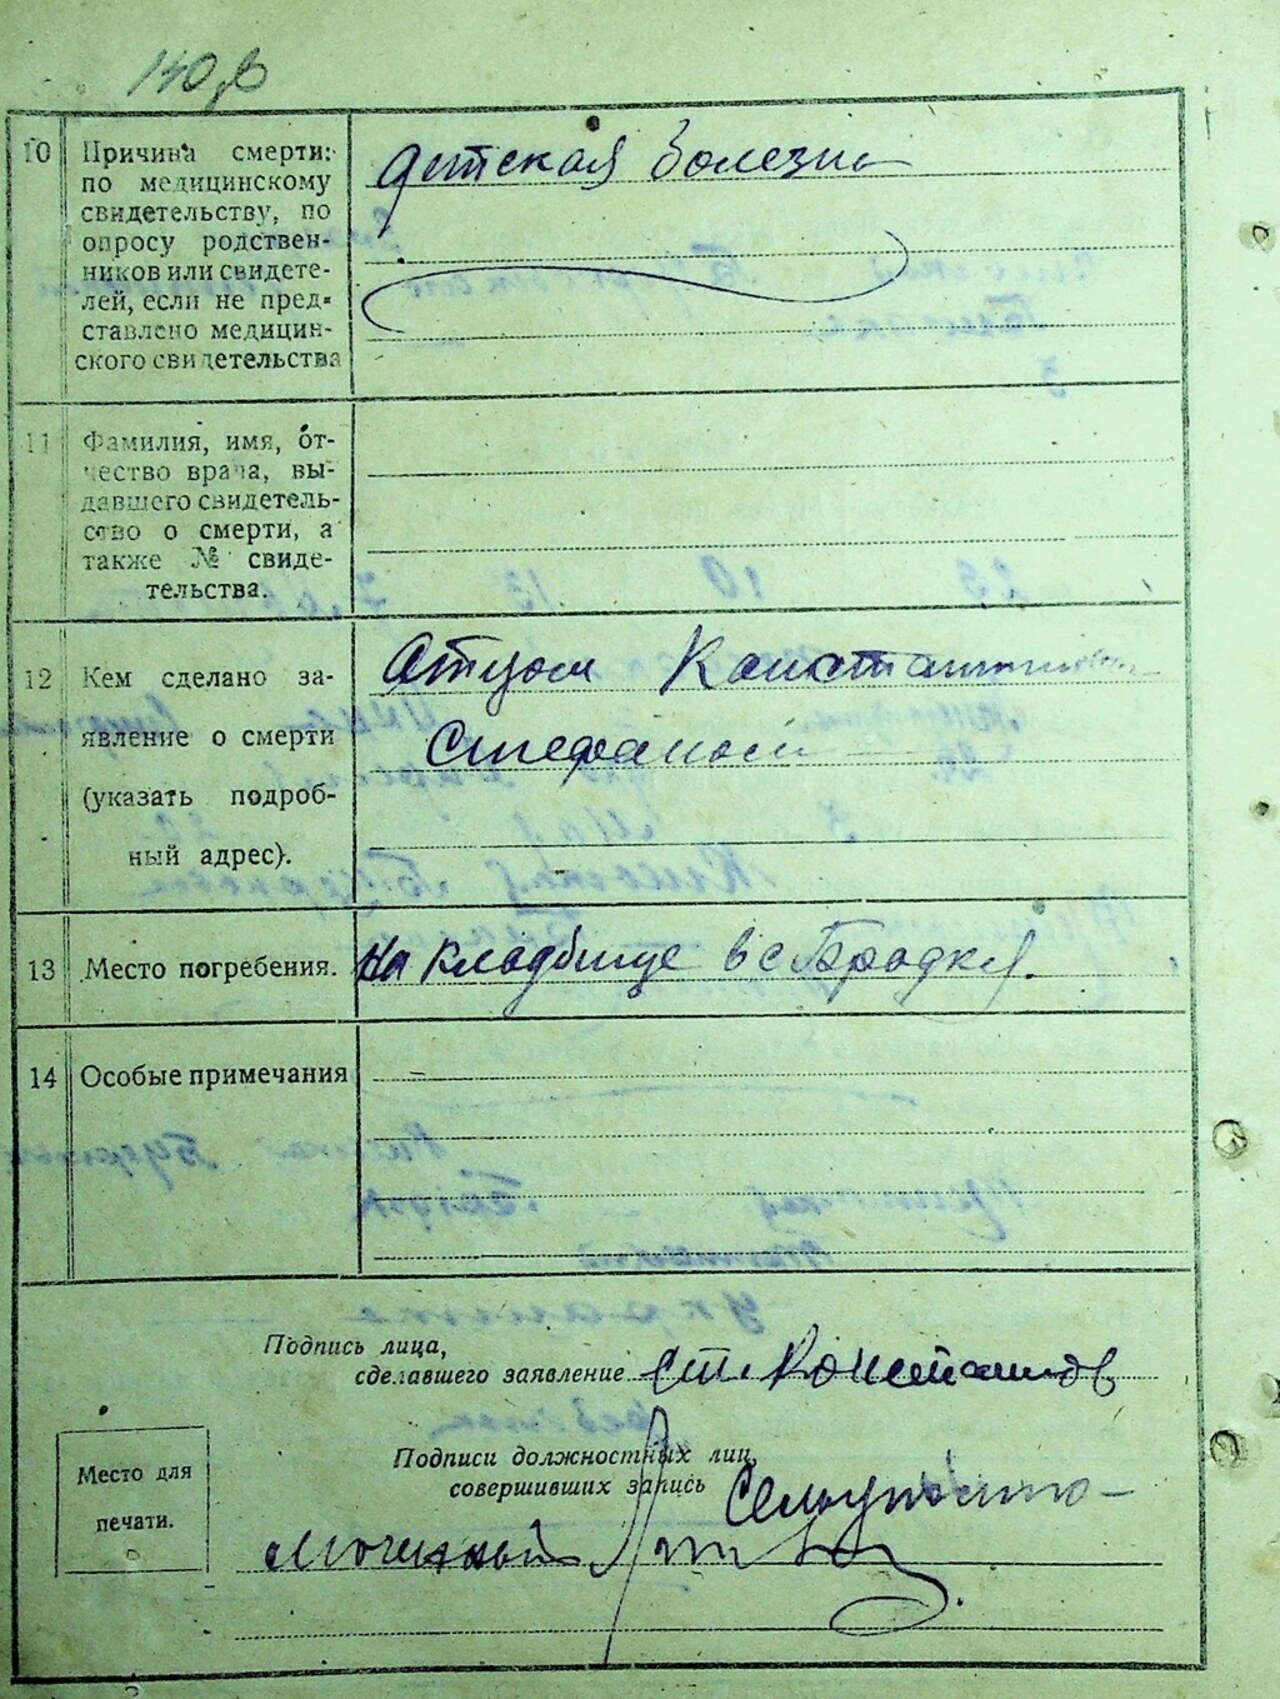 10 Причина смерти:
по медицинскому
свидетельству, по
опросу родствен-
ников или свидете-
лей, если не пред-
ставлено медицин-
ского свидетельства
детская болезнь
11 Фамилия, имя, от-
чество врача, вы-
давшего свидетель-
ство о смерти, а
также № свиде-
тельства.
12 Кем сделано за-
явление о смерти
(указать подроб-
ный адрес).
Отцом Константинов
Стефаном
13 Место погребения.
На кладбище в с
14 Особые примечания
Подпись лица,
сделавшего заявление Ст. Константинов
Подписи должностных лиц,
совершивших запись
Место для
печати.